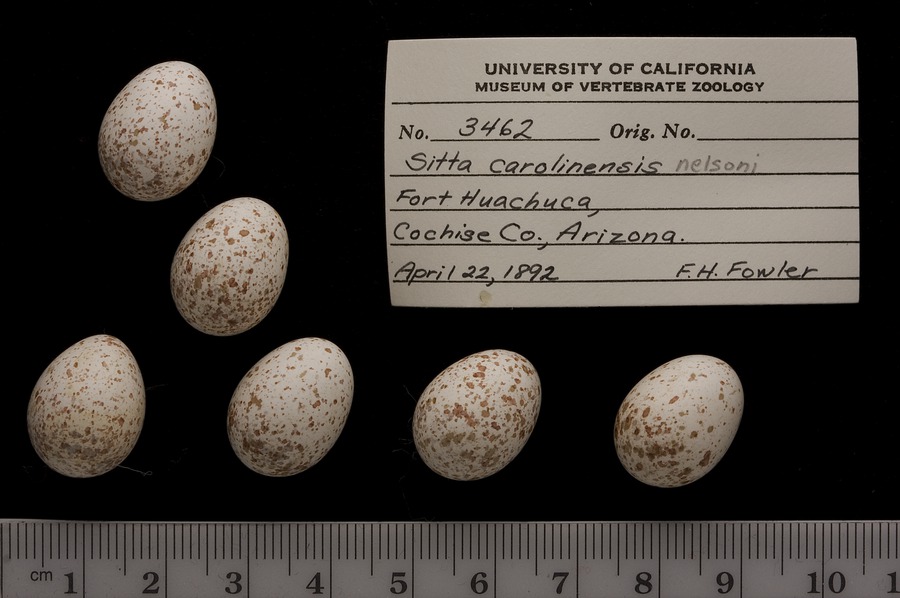 UNIVERSITY OF CALIFORNIA
MUSEUM OF VERTEBRATE ZOOLOGY
No. 3462 Orig. No.
Sitta carolinensis nelsoni
Fort Huachuca,
Cochise Co., Arizona.
April 22, 1892 F.H. Fowler
cm 1 2 3 4 5 6 7 8 9 10 1